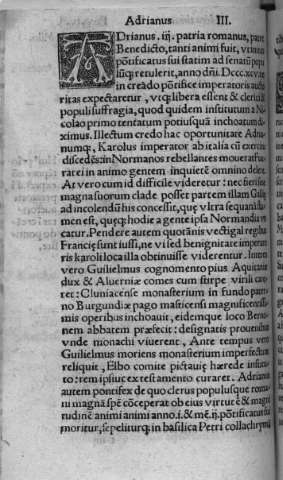 Adrianus III.
ADrianus .iij. patria romanus, patre
Benedicto, tanti animi fuit, ut
pōtificatus sui statim ad senatū
lūq; retulerit, anno dñi. Dccc.xcv.
in creādo pōtifice imperatoris aucto
ritas expectaretur, utq; libera essent & cleri &
populi suffragia, quod quidem institutum a Ni
colao primo tentatum potiusquā inchoatum di
ximus. Illectum credo hac oportunitate Adria
num q, Karolus imperator ab italia cū exercitu
discedēs in Normanos rebellantes
rat ei in animo gentem inquietē omnino delere
At vero cum id difficile videretur: nec fieri sine
magna suorum clade posset partem illam Gallie
ad incolendū his concessit, que ultra sequanā flu
men est, queq; hodie a gente ipsa Normandia vo
catur. Pendere autem quotānis vectigal regibus
Francie sunt iussi, ne vi sed benignitate imperato
ris karoli loca illa obtinuisse viderentur.
vero Guilielmus cognomento pius Aquitanie
dux & Aluernie comes cum stirpe virili care
ret: Cluniacense monasterium in fundo pater
no Burgundie pago masticensi magnificentissi
mis operibus inchoavit, eidemque loco Berno
nem abbatem prefecit: designatis proventibus
unde monachi viverent, Ante tempus vero
Guilielmus moriens monasterium imperfectum
reliquit, Elbo comite pictavie herede institu
to: rem ipsius ex testamento curaret. Adrianus
autem pontifex de quo clerus populusque roma
nus magnā spē cōceperat ob eius virtutē & magni
tudinē animi anno .i. & mē .ij. pōtificatus sui
moritur, sepeliturq; in basilica Petri collachrymā